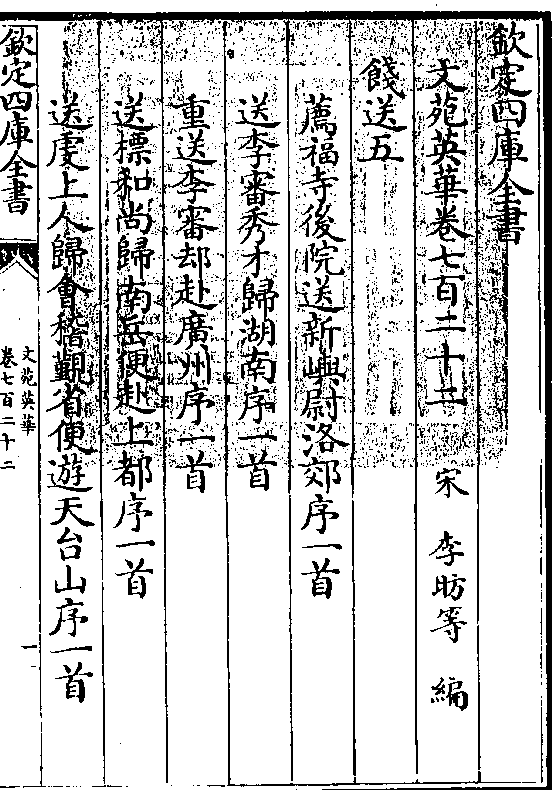 欽定四庫全書
文苑英華卷七百二十二 宋 李昉等 編
餞送五
薦福寺後院送新嶼尉洛郊序一首
送李審秀才歸湖南序一首
重送李審却赴廣州序一首
送標和尚歸南岳便赴上都序一首
送虔上人歸會稽覲省便遊天台山序一首
欽定四庫全書
文苑英華
卷七百二十二
一